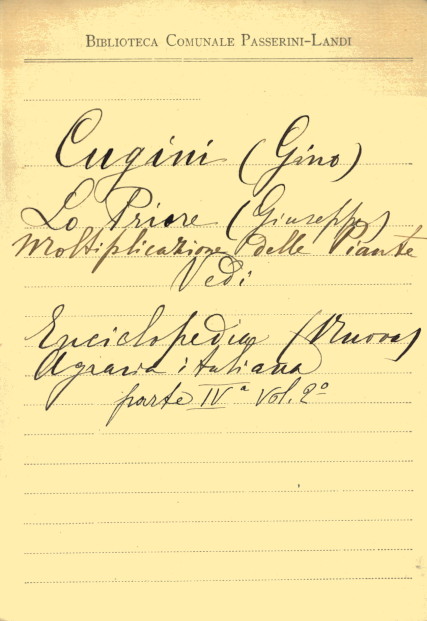 BIBLIOTECA COMUNALE PASSERINI-LANDI
Cugini (Gino)
Lo Priore (Giuseppe)
Moltiplicazione delle Piante
Vedi
Enciclopedia (Nuova)
Agraria italiana
parte IVª Vol. 2º